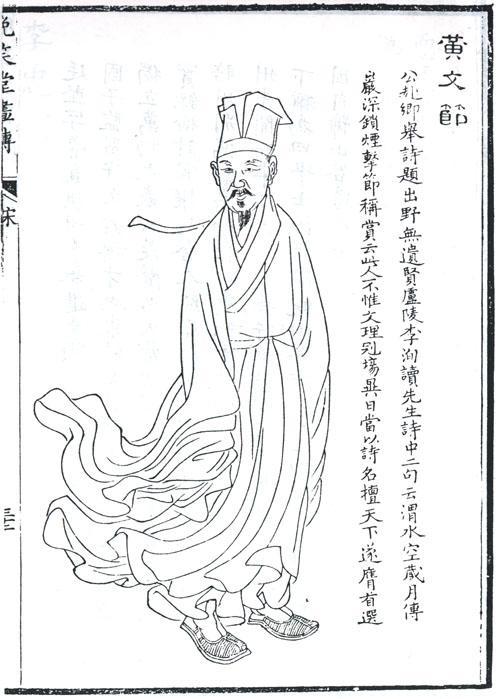 黃文節
公赴鄉舉詩題出野無遺賢廬陵李洵讀先生詩中二句云渭水空藏月傅
巖深鎖煙擊節稱賞云此人不惟文理冠場異日當以詩名擅天下遂膺首選
晚笑堂畫傳
宋